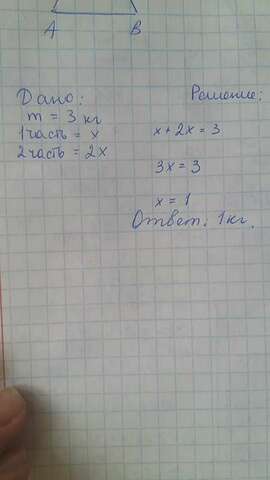 A B
Дано: Решение:
m = 3 кг
1 часть = x x + 2x = 3
2 часть = 2x
3x = 3
x = 1
Ответ: 1 кг.